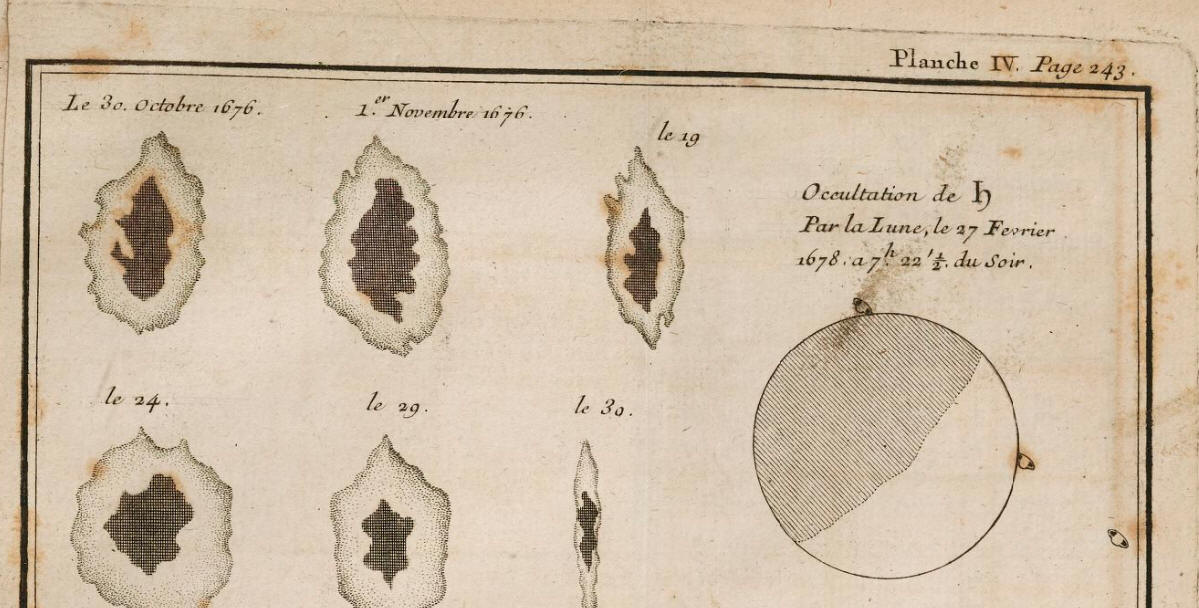 Planche IV. Page 243.
Le 30. Octobre 1676.
1.er Novembre 1676.
le 19
Occultation de ♄
Par la Lune, le 27 Fevrier
1678. a 7h 22'½. du Soir.
le 24.
le 29.
le 30.